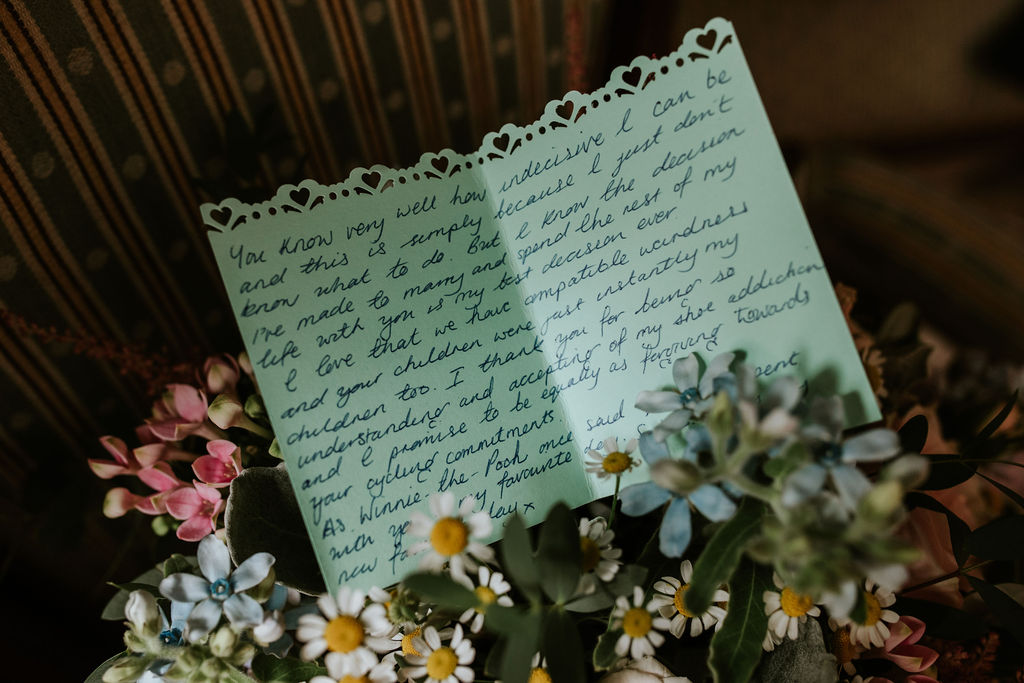 You know very well how indecisive I can be
and this is simply because I just don't
know what to do. But I know the decision
I've made to marry and spend the rest of my
life with you is my best decision ever.
I love that we have compatible weirdness
and your children were just instantly my
children too. I thank you for being so
understanding and accepting of my shoe addiction
and I promise to be equally as forgiving towards
your cycling commitments.
As Winnie-the-Pooh once said
with my favourite
new